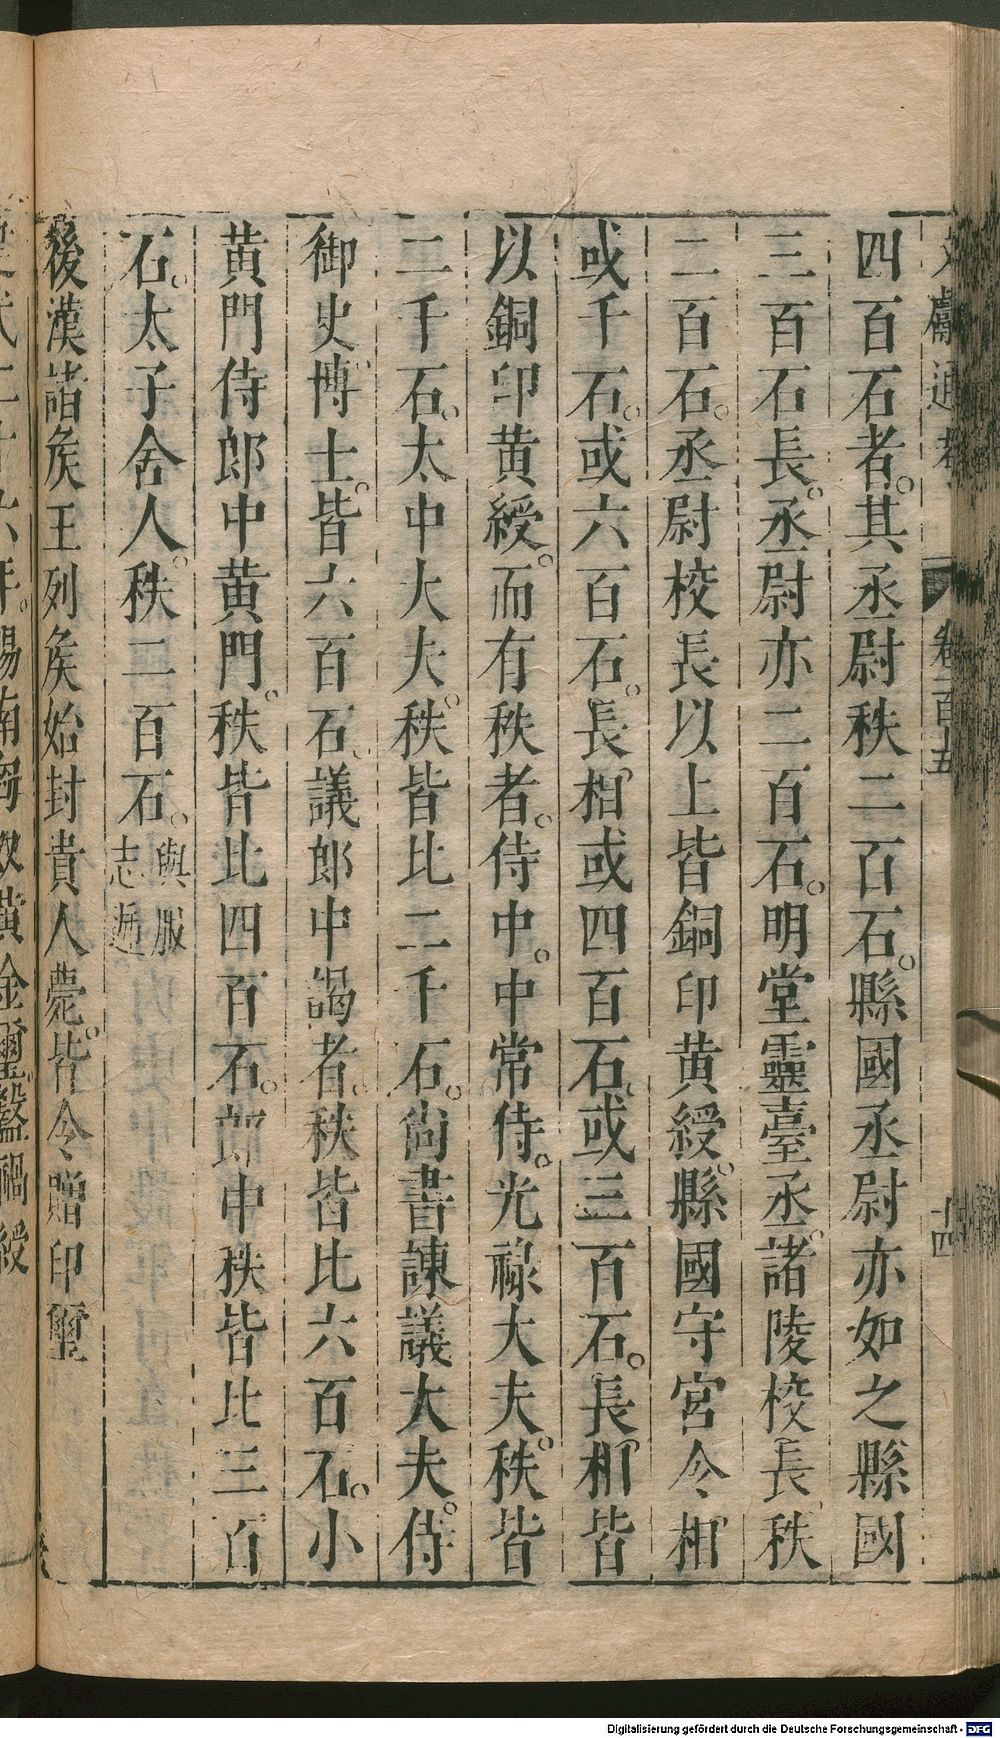 文獻通考 卷一百十五 十四
四百石者。其丞尉秩二百石。縣國丞尉亦如之縣國
三百石長。丞尉亦二百石。明堂靈臺丞。諸陵校長秩
二百石。丞尉校長以上皆銅印黄綬。縣國守宮令相
或千石。或六百石。長相或四百石。或三百石。長相皆
以銅印黄綬。而有秩者。侍中。中常侍。光祿大夫。秩皆
二千石。太中大夫。秩皆比二千石。尚書諫議大夫。侍
御史。博士。皆六百石。議郎中謁者。秩皆比六百石。小
黄門侍郎中黄門。秩皆比四百石。郎中秩皆比三百
石。太子舍人。秩二百石。輿服志逓
後漢諸侯王列侯始封貴人薨。皆令贈印璽
Digitalisierung gefördert durch die Deutsche Forschungsgemeinschaft - DFG